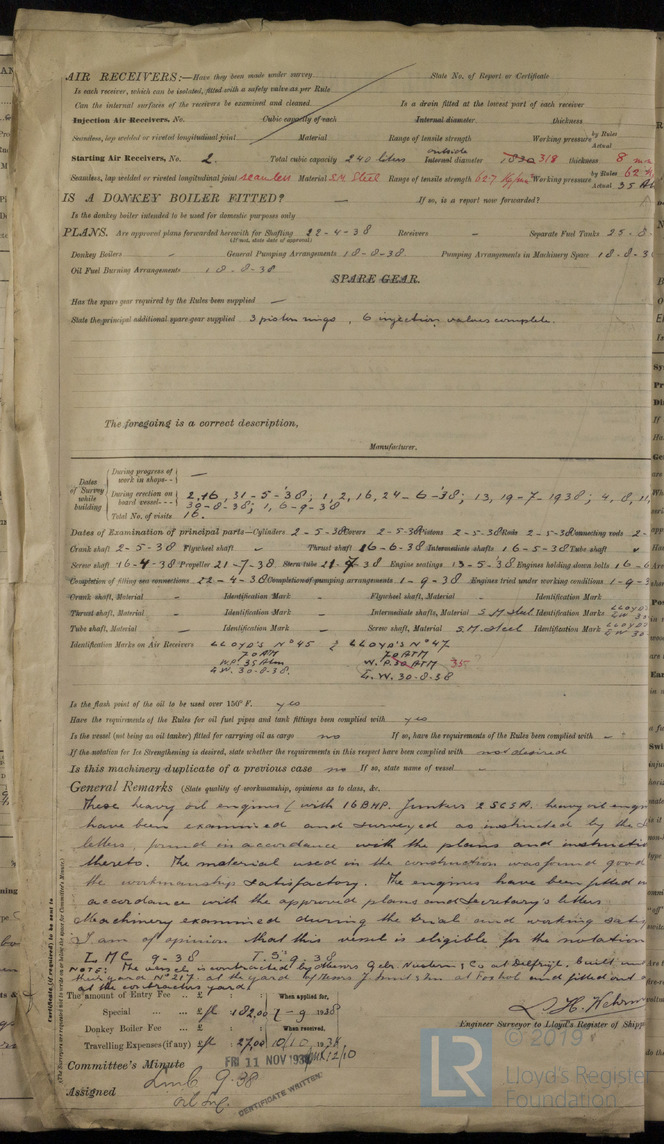 AIR RECEIVERS:—Have they been made under survey State No. of Report or Certificate
Is each receiver, which can be isolated, fitted with a safety valve as per Rule
Can the internal surfaces of the receivers be examined and cleaned Is a drain fitted at the lowest part of each receiver
Injection Air Receivers, No. Cubic capacity of each Internal diameter thickness
Seamless, lap welded or riveted longitudinal joint Material Range of tensile strength Working pressure by Rules Actual
Starting Air Receivers, No. 2. Total cubic capacity 240 liters outside Internal diameter 318 thickness 8 mm
Seamless, lap welded or riveted longitudinal joint seamless Material S.M. Steel Range of tensile strength Working pressure by Rules 62 Actual 35 At
IS A DONKEY BOILER FITTED? — If so, is a report now forwarded?
Is the donkey boiler intended to be used for domestic purposes only
PLANS. Are approved plans forwarded herewith for Shafting 22-4-38 Receivers — Separate Fuel Tanks 25-8-
(If not, state date of approval)
Donkey Boilers — General Pumping Arrangements 18-8-38. Pumping Arrangements in Machinery Space 18-8-3
Oil Fuel Burning Arrangements 18-8-38
SPARE GEAR.
Has the spare gear required by the Rules been supplied —
State the principal additional spare gear supplied 3 piston rings, 6 injection valves complete.
The foregoing is a correct description,
Manufacturer.
Dates of Survey while building
During progress of work in shops - - —
During erection on board vessel - - - 2, 16, 31-5-'38; 1, 2, 16, 24-6-'38; 13, 19-7-1938; 4, 8, 11,
30-8-38; 1, 6-9-38
Total No. of visits 16.
Dates of Examination of principal parts—Cylinders 2-5-38 Covers 2-5-38 Pistons 2-5-38 Rods 2-5-38 Connecting rods 2-
Crank shaft 2-5-38 Flywheel shaft Thrust shaft 16-6-38 Intermediate shafts 16-5-38 Tube shaft
Screw shaft 16-4-38 Propeller 21-7-38 Stern tube 21-7-38 Engine seatings 13-5-38 Engines holding down bolts 16-6
Completion of fitting sea connections 22-4-38 Completion of pumping arrangements 1-9-38 Engines tried under working conditions 1-9-3
Crank shaft, Material — Identification Mark — Flywheel shaft, Material — Identification Mark
Thrust shaft, Material — Identification Mark — Intermediate shafts, Material S.M. Steel Identification Marks LLOYD'S
Tube shaft, Material — Identification Mark — Screw shaft, Material S.M. Steel Identification Mark LLOYD'S
Identification Marks on Air Receivers LLOYD'S No 45 & LLOYD'S No 47
70 ATM 70 ATM
W.P. 35 Atm W.P. 30 ATM 35
G.W. 30-8-38. G.W. 30-8-38
Is the flash point of the oil to be used over 150° F. yes
Have the requirements of the Rules for oil fuel pipes and tank fittings been complied with yes
Is the vessel (not being an oil tanker) fitted for carrying oil as cargo no If so, have the requirements of the Rules been complied with —
If the notation for Ice Strengthening is desired, state whether the requirements in this respect have been complied with not desired
Is this machinery duplicate of a previous case no If so, state name of vessel —
General Remarks (State quality of workmanship, opinions as to class, &c.
These heavy oil engines (with 16 BHP. Junkers 2SCSA. heavy oil engn
have been examined and surveyed as instructed by the
letters, found in accordance with the plans and instructio
thereto. The material used in the construction was found good
the workmanship satisfactory. The engines have been fitted in
accordance with the approved plans and Secretary's letters
Machinery examined during the trial and working satis
I am of opinion that this vessel is eligible for the notation
LMC 9-38 T.S. 9-38
NOTE: The vessel is contracted by Messrs Gebr. & Co at Delfzijl. built
yard No 217, at the yard by Messrs J. at and fitted out
at the contractors yard.
The amount of Entry Fee .. £ : : When applied for,
Special ... ... £ fl. 182,00 7-9 1938
Donkey Boiler Fee ... £ : : When received.
Travelling Expenses (if any) £ fl : 27,00 10/10 1938
Committee's Minute FRI 11 NOV 1938
Assigned LMC 9.38
Oil Eng.
CERTIFICATE WRITTEN
Engineer Surveyor to Lloyd's Register of Shipp
Certificate (if required) to be sent to
(The Surveyors are requested not to write on or below the space for Committee's Minute.)
© 2019
LR
Lloyd's Register
Foundation